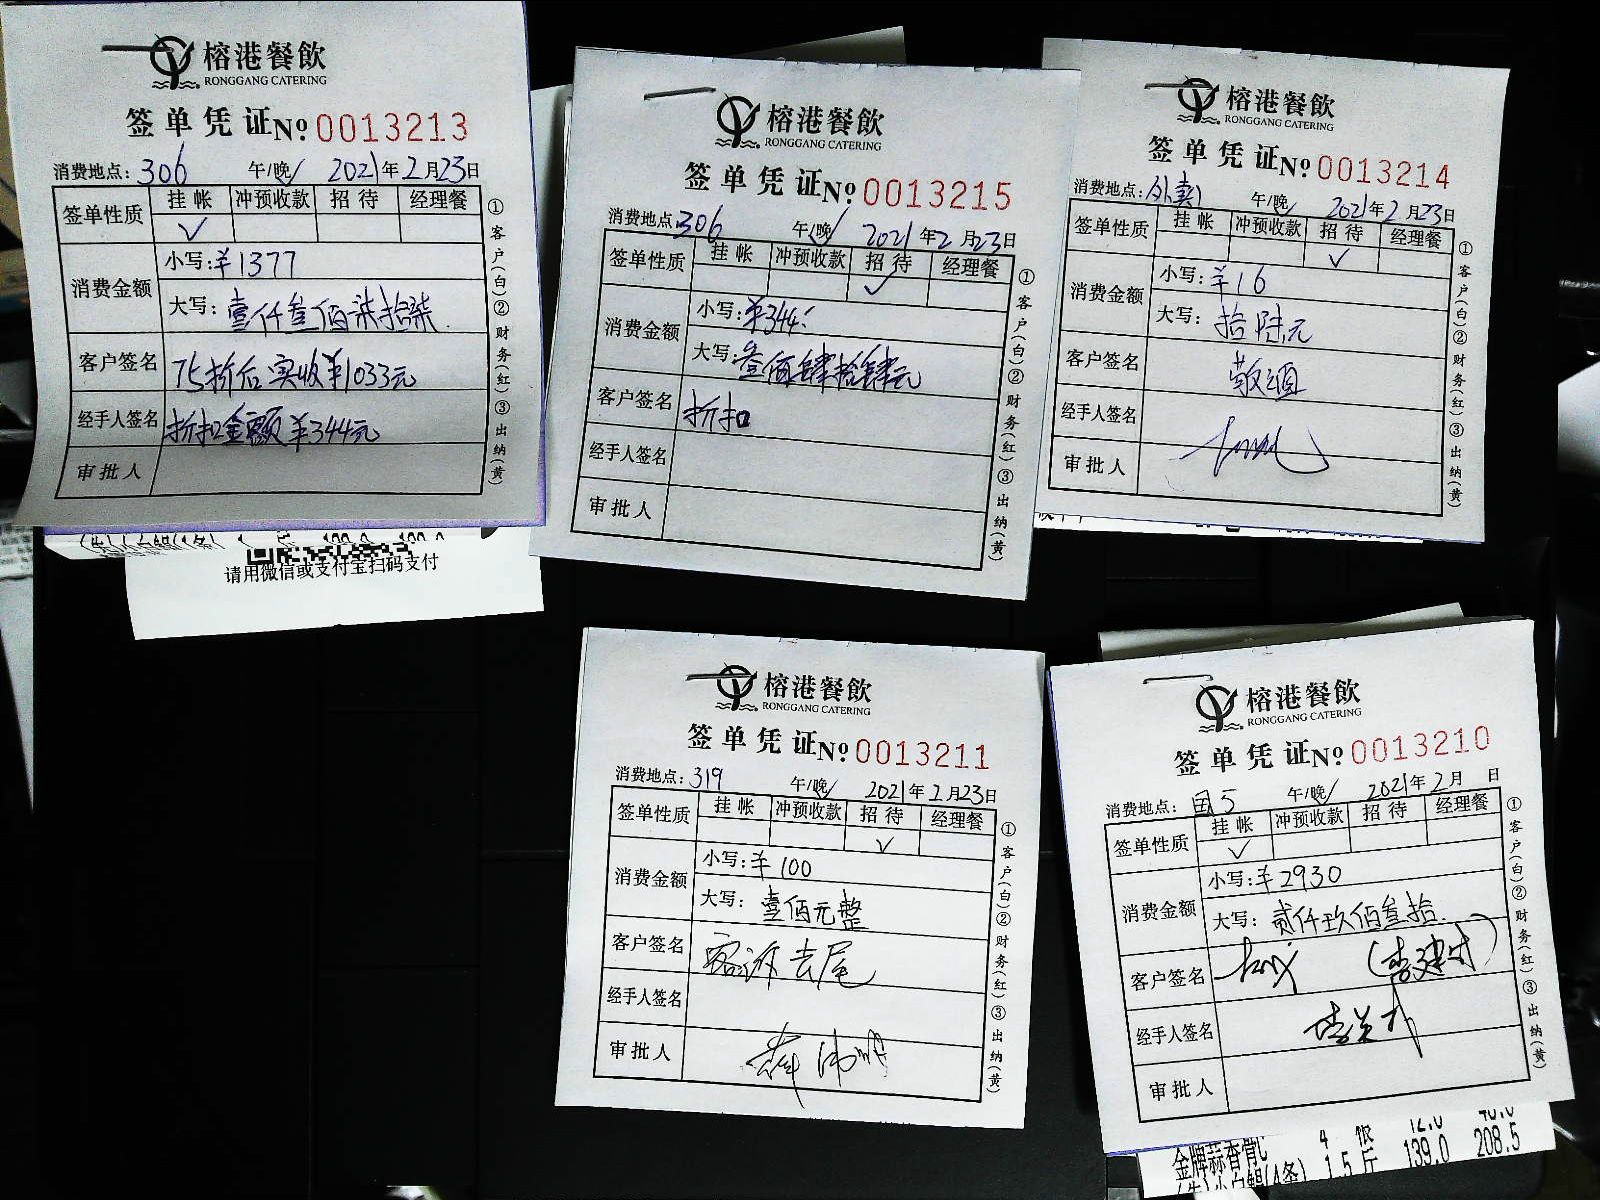 榕港餐飲
RONGGANG CATERING
签单凭证№0013213
消费地点：306 午/晚✓ 2021年2月23日
签单性质 挂帐 冲预收款 招待 经理餐
✓
消费金额 小写：¥1377
大写：壹仟叁佰柒拾柒
客户签名 75折后实收¥1033元
经手人签名 折扣金额¥344元
审批人
①客户(白)②财务(红)③出纳(黄)
请用微信或支付宝扫码支付
榕港餐飲
RONGGANG CATERING
签单凭证№0013215
消费地点：306 午/晚✓ 2021年2月23日
签单性质 挂帐 冲预收款 招待 经理餐
✓
消费金额 小写：¥344
大写：叁佰肆拾肆元
客户签名 折扣
经手人签名
审批人
①客户(白)②财务(红)③出纳(黄)
榕港餐飲
RONGGANG CATERING
签单凭证№0013214
消费地点：外卖1 午/晚✓ 2021年2月23日
签单性质 挂帐 冲预收款 招待 经理餐
✓
消费金额 小写：¥16
大写：拾陆元
客户签名 敬酒
经手人签名
审批人
①客户(白)②财务(红)③出纳(黄)
榕港餐飲
RONGGANG CATERING
签单凭证№0013211
消费地点：319 午/晚✓ 2021年2月23日
签单性质 挂帐 冲预收款 招待 经理餐
✓
消费金额 小写：¥100
大写：壹佰元整
客户签名 客诉去尾
经手人签名
审批人
①客户(白)②财务(红)③出纳(黄)
榕港餐飲
RONGGANG CATERING
签单凭证№0013210
消费地点：国5 午/晚✓ 2021年2月 日
签单性质 挂帐 冲预收款 招待 经理餐
✓
消费金额 小写：¥2930
大写：贰仟玖佰叁拾
客户签名
经手人签名
审批人
①客户(白)②财务(红)③出纳(黄)
金牌蒜香骨 4 根 12.0
1.5 斤 139.0 208.5